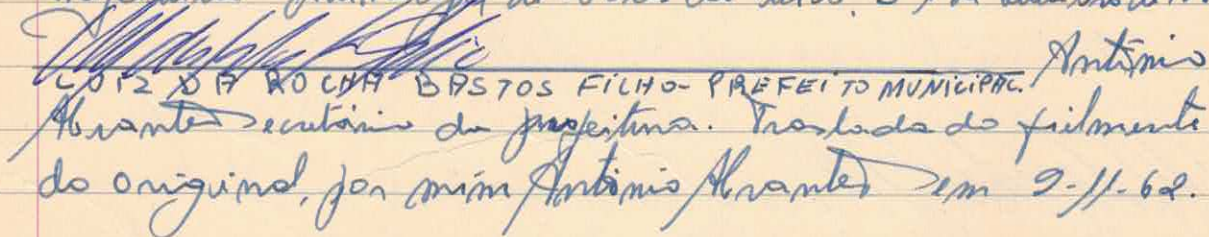 LUIZ DA ROCHA BASTOS FILHO - PREFEITO MUNICIPAL. Antônio
Abrantes Secretário da prefeitura. Traslada do fielmente
do original, por mim Antônio Abrantes em 9-11-62.